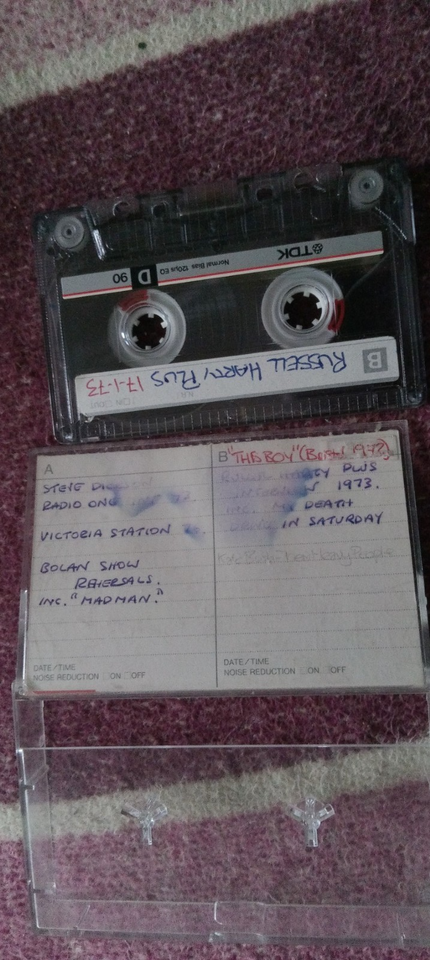 TDK
Normal Bias 120µs EQ
D 90
B
RUSSELL HARTY PLUS 17-1-73
A
RADIO ONE
VICTORIA STATION
BOLAN SHOW
REHERSALS.
INC. "MADMAN."
DATE/TIME
NOISE REDUCTION ON OFF
B "THIS BOY"
HARTY PLUS
1973.
MY DEATH
IN SATURDAY
DATE/TIME
NOISE REDUCTION ON OFF